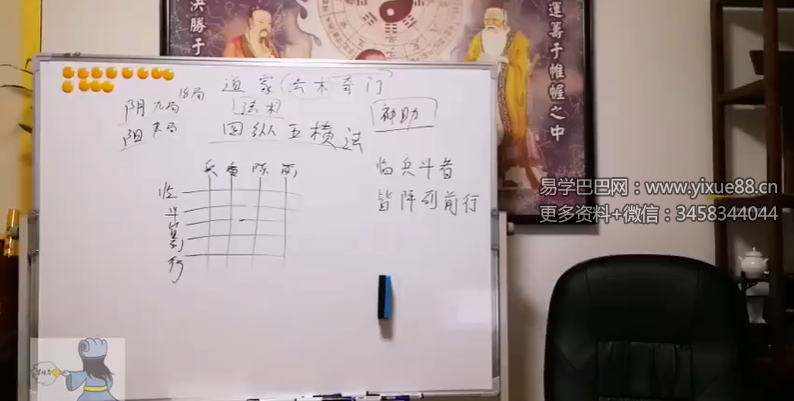 决勝于
運籌于帷幄之中
道家(法术奇门
18局
阴九局
阳九局
法术
神助
四纵五横法
兵者陈前
临
斗
皆
列
行
临兵斗者
皆阵列前行
易学巴巴网:www.yixue88.cn
更多资料+微信:3458344044